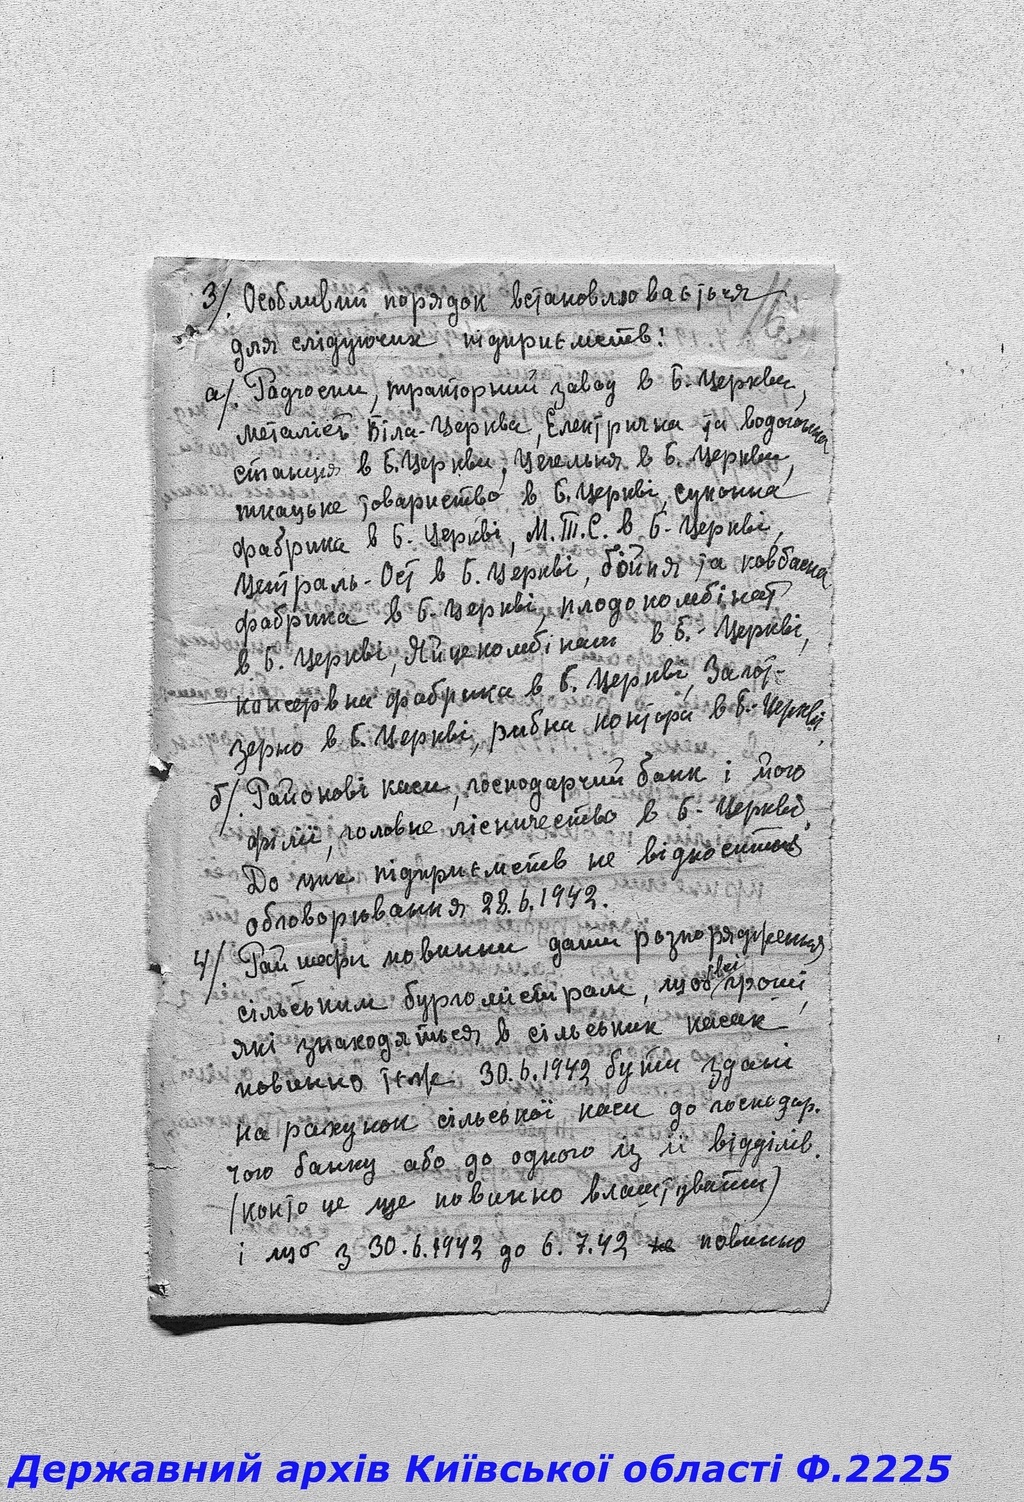 3/. Особливий порядок встановлюваєтьчя
для слідуючих підприємств:
а/. Радгоспи, тракторний завод в Б. Церкви,
металіст Біла-Церква, Електрична та водогонна
станция в Б. Церкви, Цегельня в Б. Церкви,
ткацьке товариство в Б. Церкві, суконна
фабрика в Б- Церкві, М.Т.С. в Б- Церкві,
Централь-Ост в Б. Церкві, бойня та ковбасна
фабрика в Б. Церкві, плодокомбінат
в Б. Церкві, Яйцекомбінат в Б.- Церкві,
консервна фабрика в Б. Церкві, Загот-
зерно в Б. Церкві, рибна контора в Б.-Церкві.
б/. Районові каси, господарчий банк і його
філії, головне лісничество в Б- Церкві.
До цих підприємств не відноситься
обговорювання 28.6.1942.
4/. Райшефи повинни дати розпорядження
сільським бургомістрам, щоб всі гроші,
які знаходяться в сільських касах
повинно теж 30.6.1942 бути здані
на рахунок сільської каси до господар.
чого банку або до одного із її відділів.
(конто це ще повинно влаштувати)
і щоб з 30.6.1942 до 6.7.42 не повинно
Державний архів Київської області Ф.2225